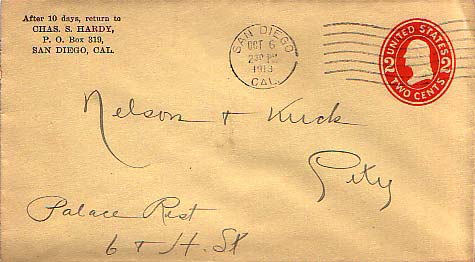 After 10 days, return to
CHAS. S. HARDY,
P. O. Box 319,
SAN DIEGO, CAL.
SAN DIEGO
OCT 6
230 PM
1913
CAL.
UNITED STATES
2 2
TWO CENTS
Nelson & Kuck
City
Palace Rest
6 & H. St